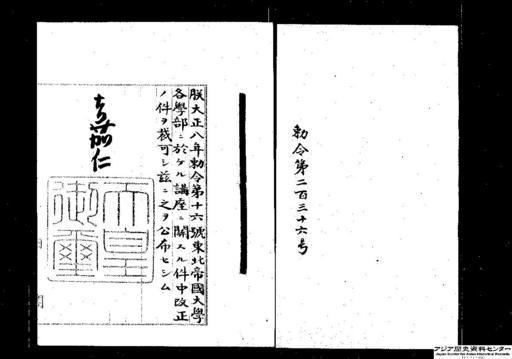 勅令第二百三十六号
朕大正八年勅令第十六號東北帝國大學
各學部ニ於ケル講座ニ關スル件中改正
ノ件ヲ裁可シ茲ニ之ヲ公布セシム
嘉仁
天皇御璽
アジア歴史資料センター
Japan Center for Asian Historical Records